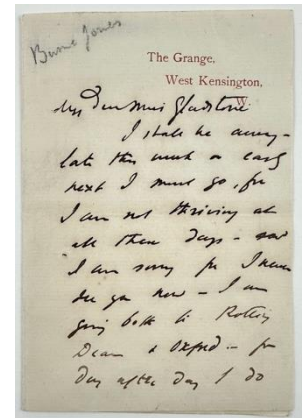 Burne Jones
The Grange,
West Kensington,
W.
My Dear Miss Gladstone
I shall be away –
late this week or early
next I must go, for
I am not thriving at
all these days – and
I am sorry for I never
see you now – I am
going both to Rotting
Dean & Oxford – for
day after day I do